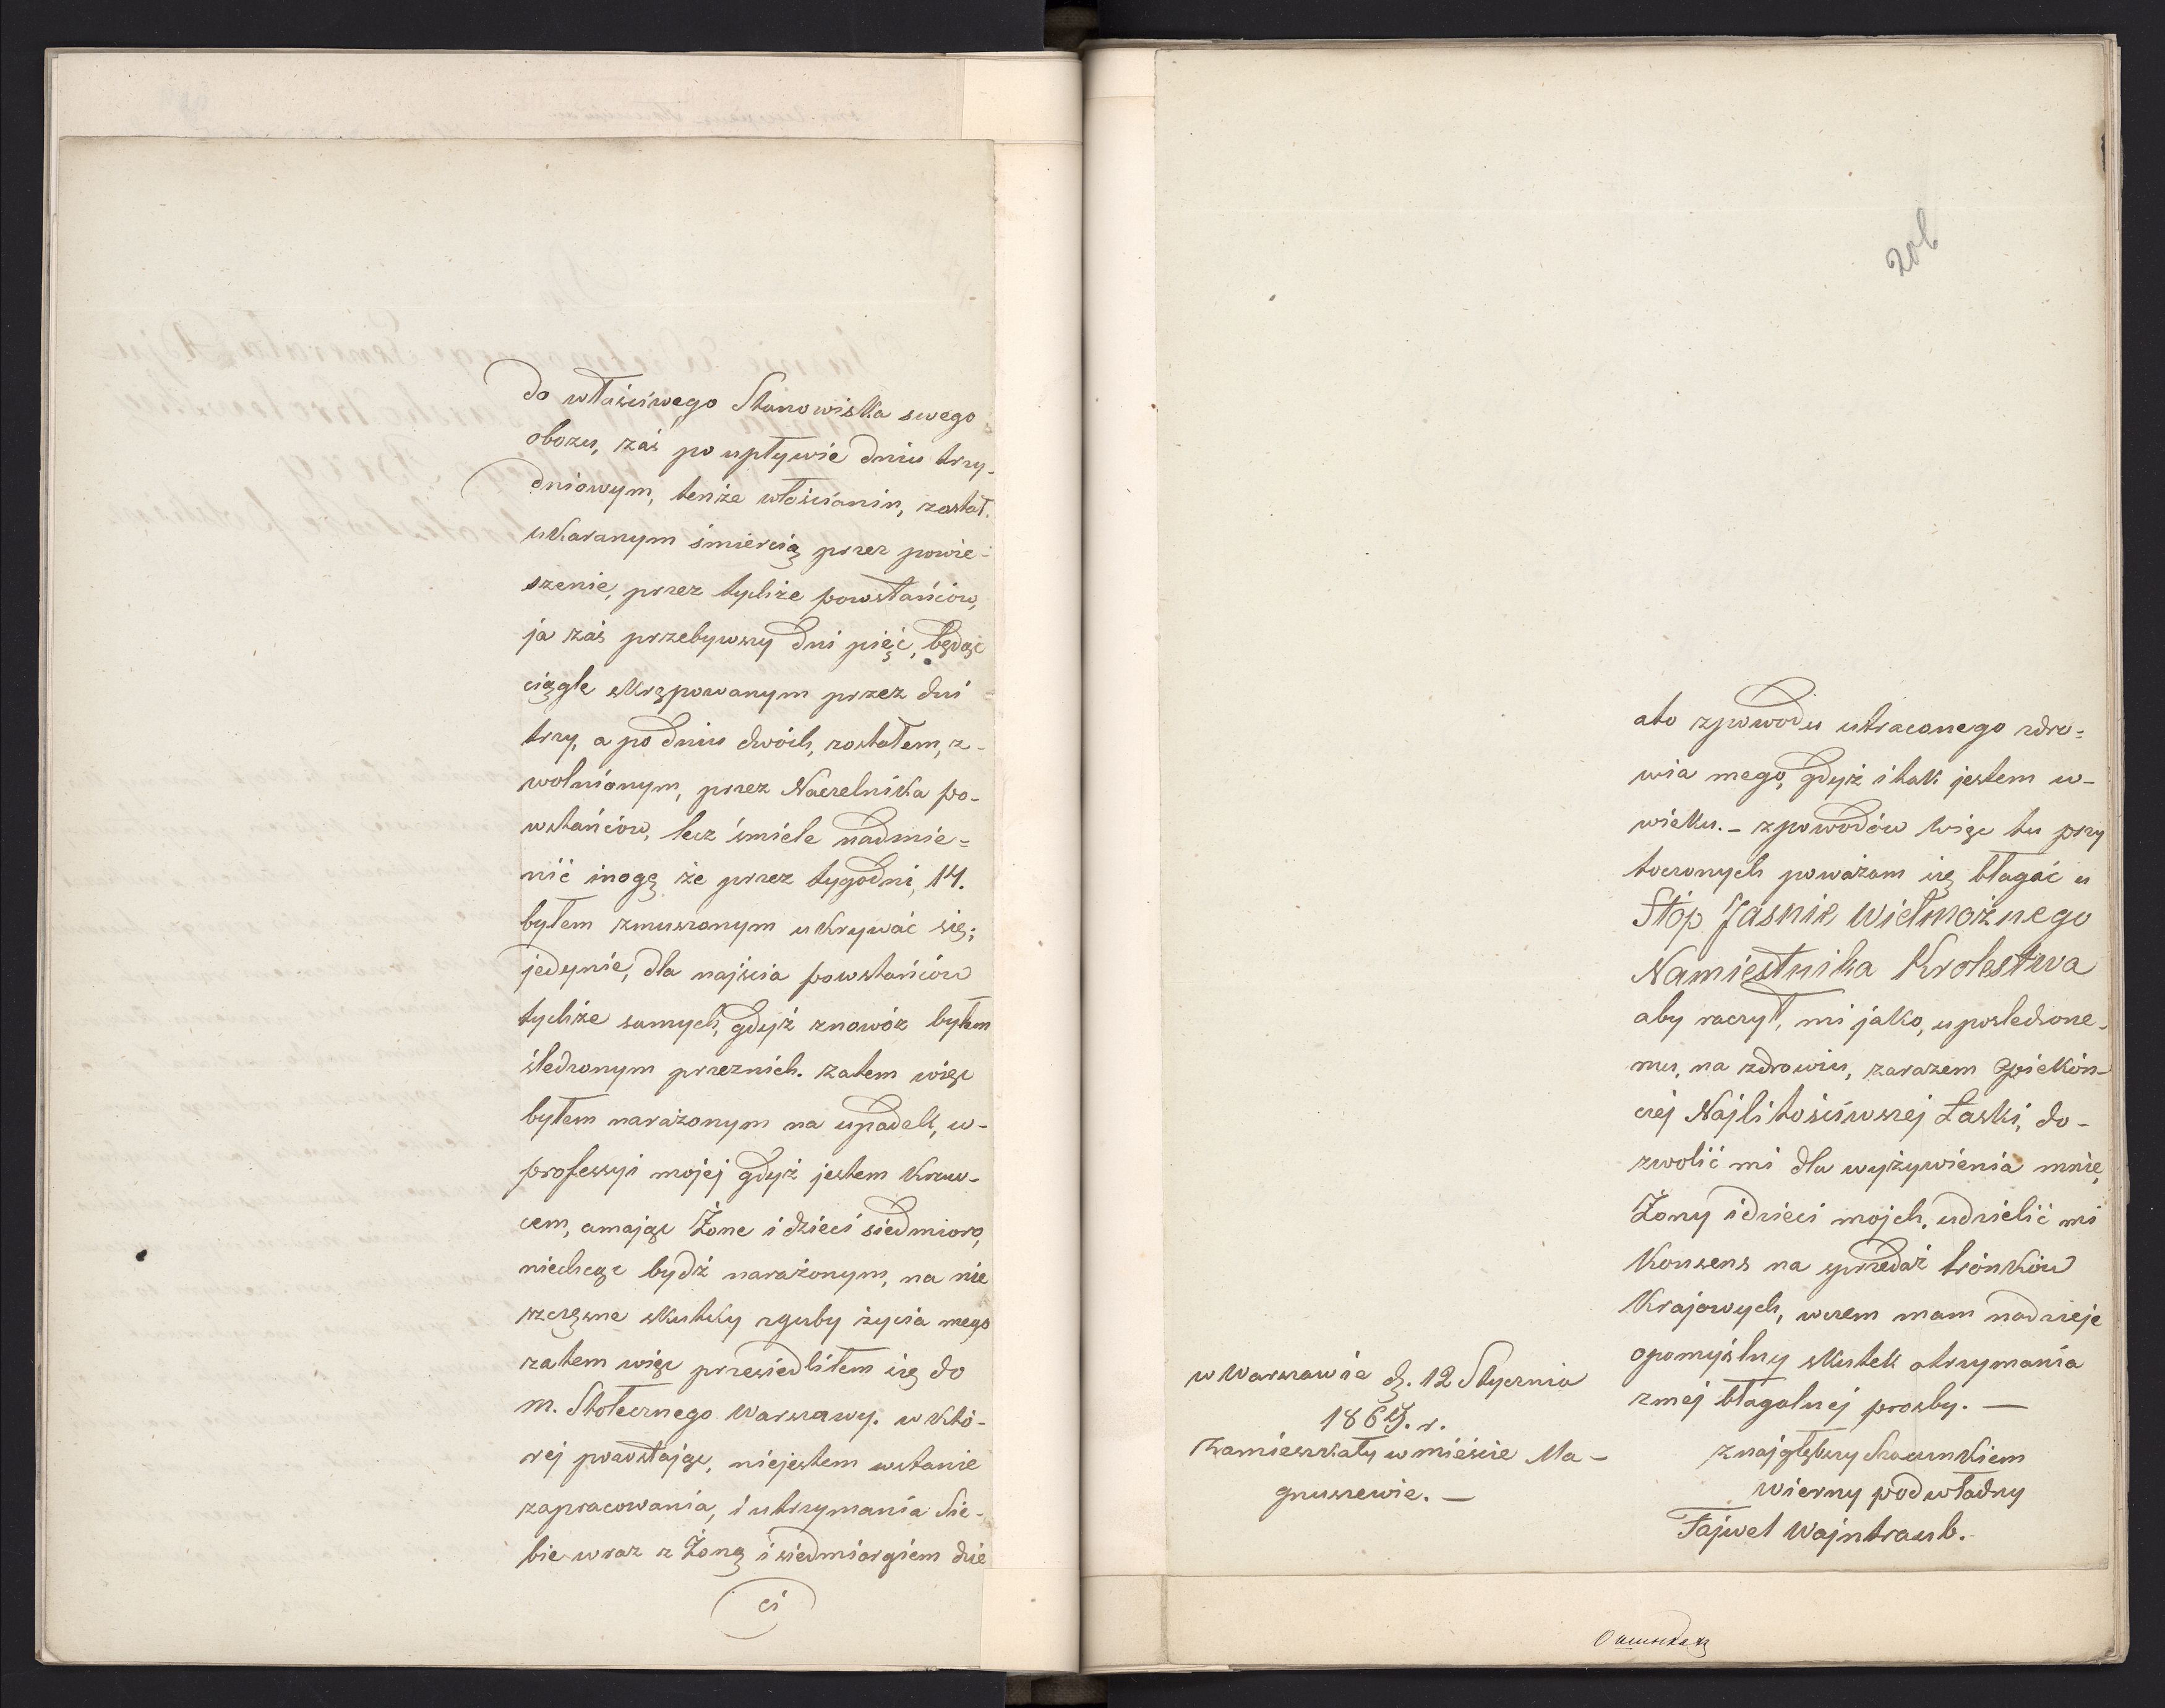 do właściwego Stanowiska swego
obozu, zaś po upływie dniu trzy-
dniowym, tenże włościanin, został
ukaranym śmiercią przez powie-
szenie, przez tychże powstańców,
ja zaś przebywszy dni pięć, będąc
ciągle skrępowanym przez dni
trzy, a po dniu dwóch, zostałem, z-
wolnionym, przez Naczelnika po-
wstańców, lecz śmiele nadmie=
nić mogę że przez tygodni, 14.
byłem zmuszonym ukrywać się;
jedynie, dla najścia powstańców
tychże samych, gdyż znowóz byłem
śledzonym przeznich. zatem więc
byłem narażonym na upadek, w-
professyi mojej gdyż jestem Kraw-
cem, amając Żone i dzieci siedmioro,
niechcąc bydź narażonym, na nie
szczęsne skutky zguby życia mego
zatem więc przesiedliłem się do
m. Stołecznego Warszawy. w któ-
rej pozostając, niejestem wstanie
zapracowania, i utrzymania Sie-
bie wraz z Żoną i siedmiorgiem dzie
ci
206
ato zpowodu utraconego zdro=
wia mego, gdyż i tak jestem w-
wieku. - zpowodów więc tu przy
toczonych poważam się błagać u
Stóp Jasnie Wielmożnego
Namiestnika Krolestwa
aby raczył, mi jako, uposledzone-
mu, na zdrowiu, zarazem
czej Najlitościwszej Łaski, do-
zwolić mi dla wyżywienia mnie,
Żony idzieci mojch, udzielić mi
Konsens na sprzedaż trónków
Krajowych, wczem mam nadzieje
opomyślny skutek otrzymania
zmej błagalnej prosby. —
znajgłębszy Szacunkiem
wierny podwładny
Fajwel Wajntraub.
w Warszawie d. 12 Stycznia
1865. r.
Zamieszkały w mieście Ma-
gnuszewie. —